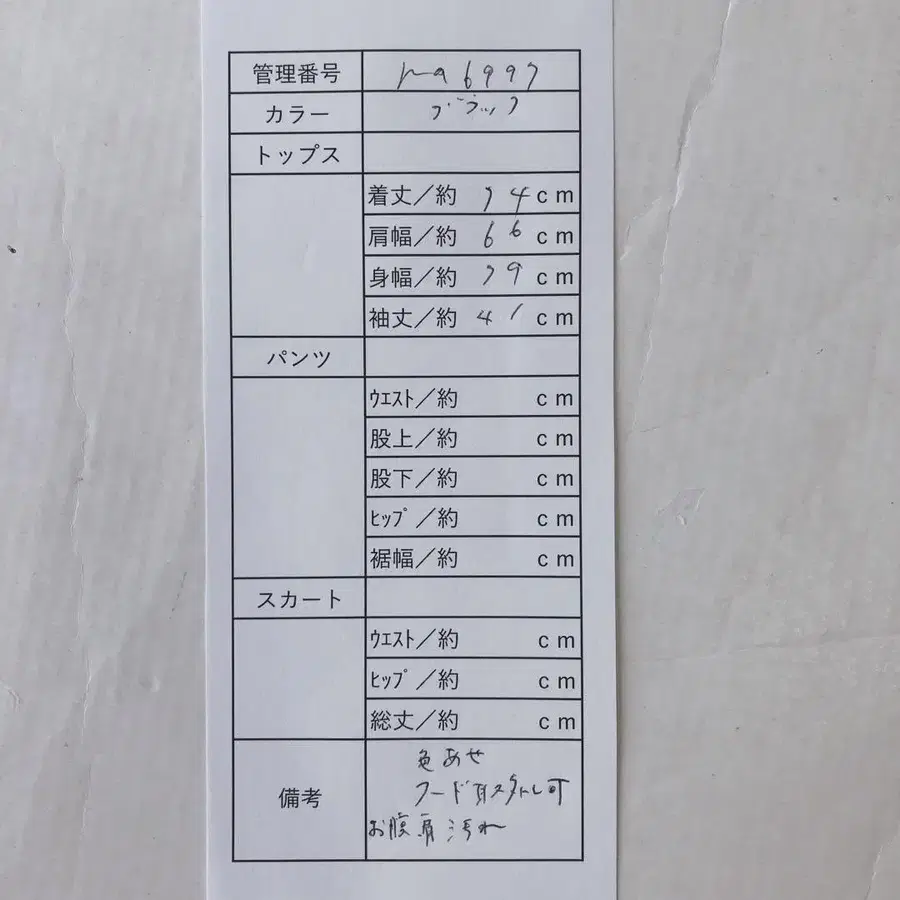 管理番号 ra6997
カラー ブラック
トップス
着丈／約 74cm
肩幅／約 66cm
身幅／約 79cm
袖丈／約 41cm
パンツ
ｳｴｽﾄ／約 cm
股上／約 cm
股下／約 cm
ﾋｯﾌﾟ／約 cm
裾幅／約 cm
スカート
ｳｴｽﾄ／約 cm
ﾋｯﾌﾟ／約 cm
総丈／約 cm
備考
色あせ
フード取り外し可
お腹肩汚れ